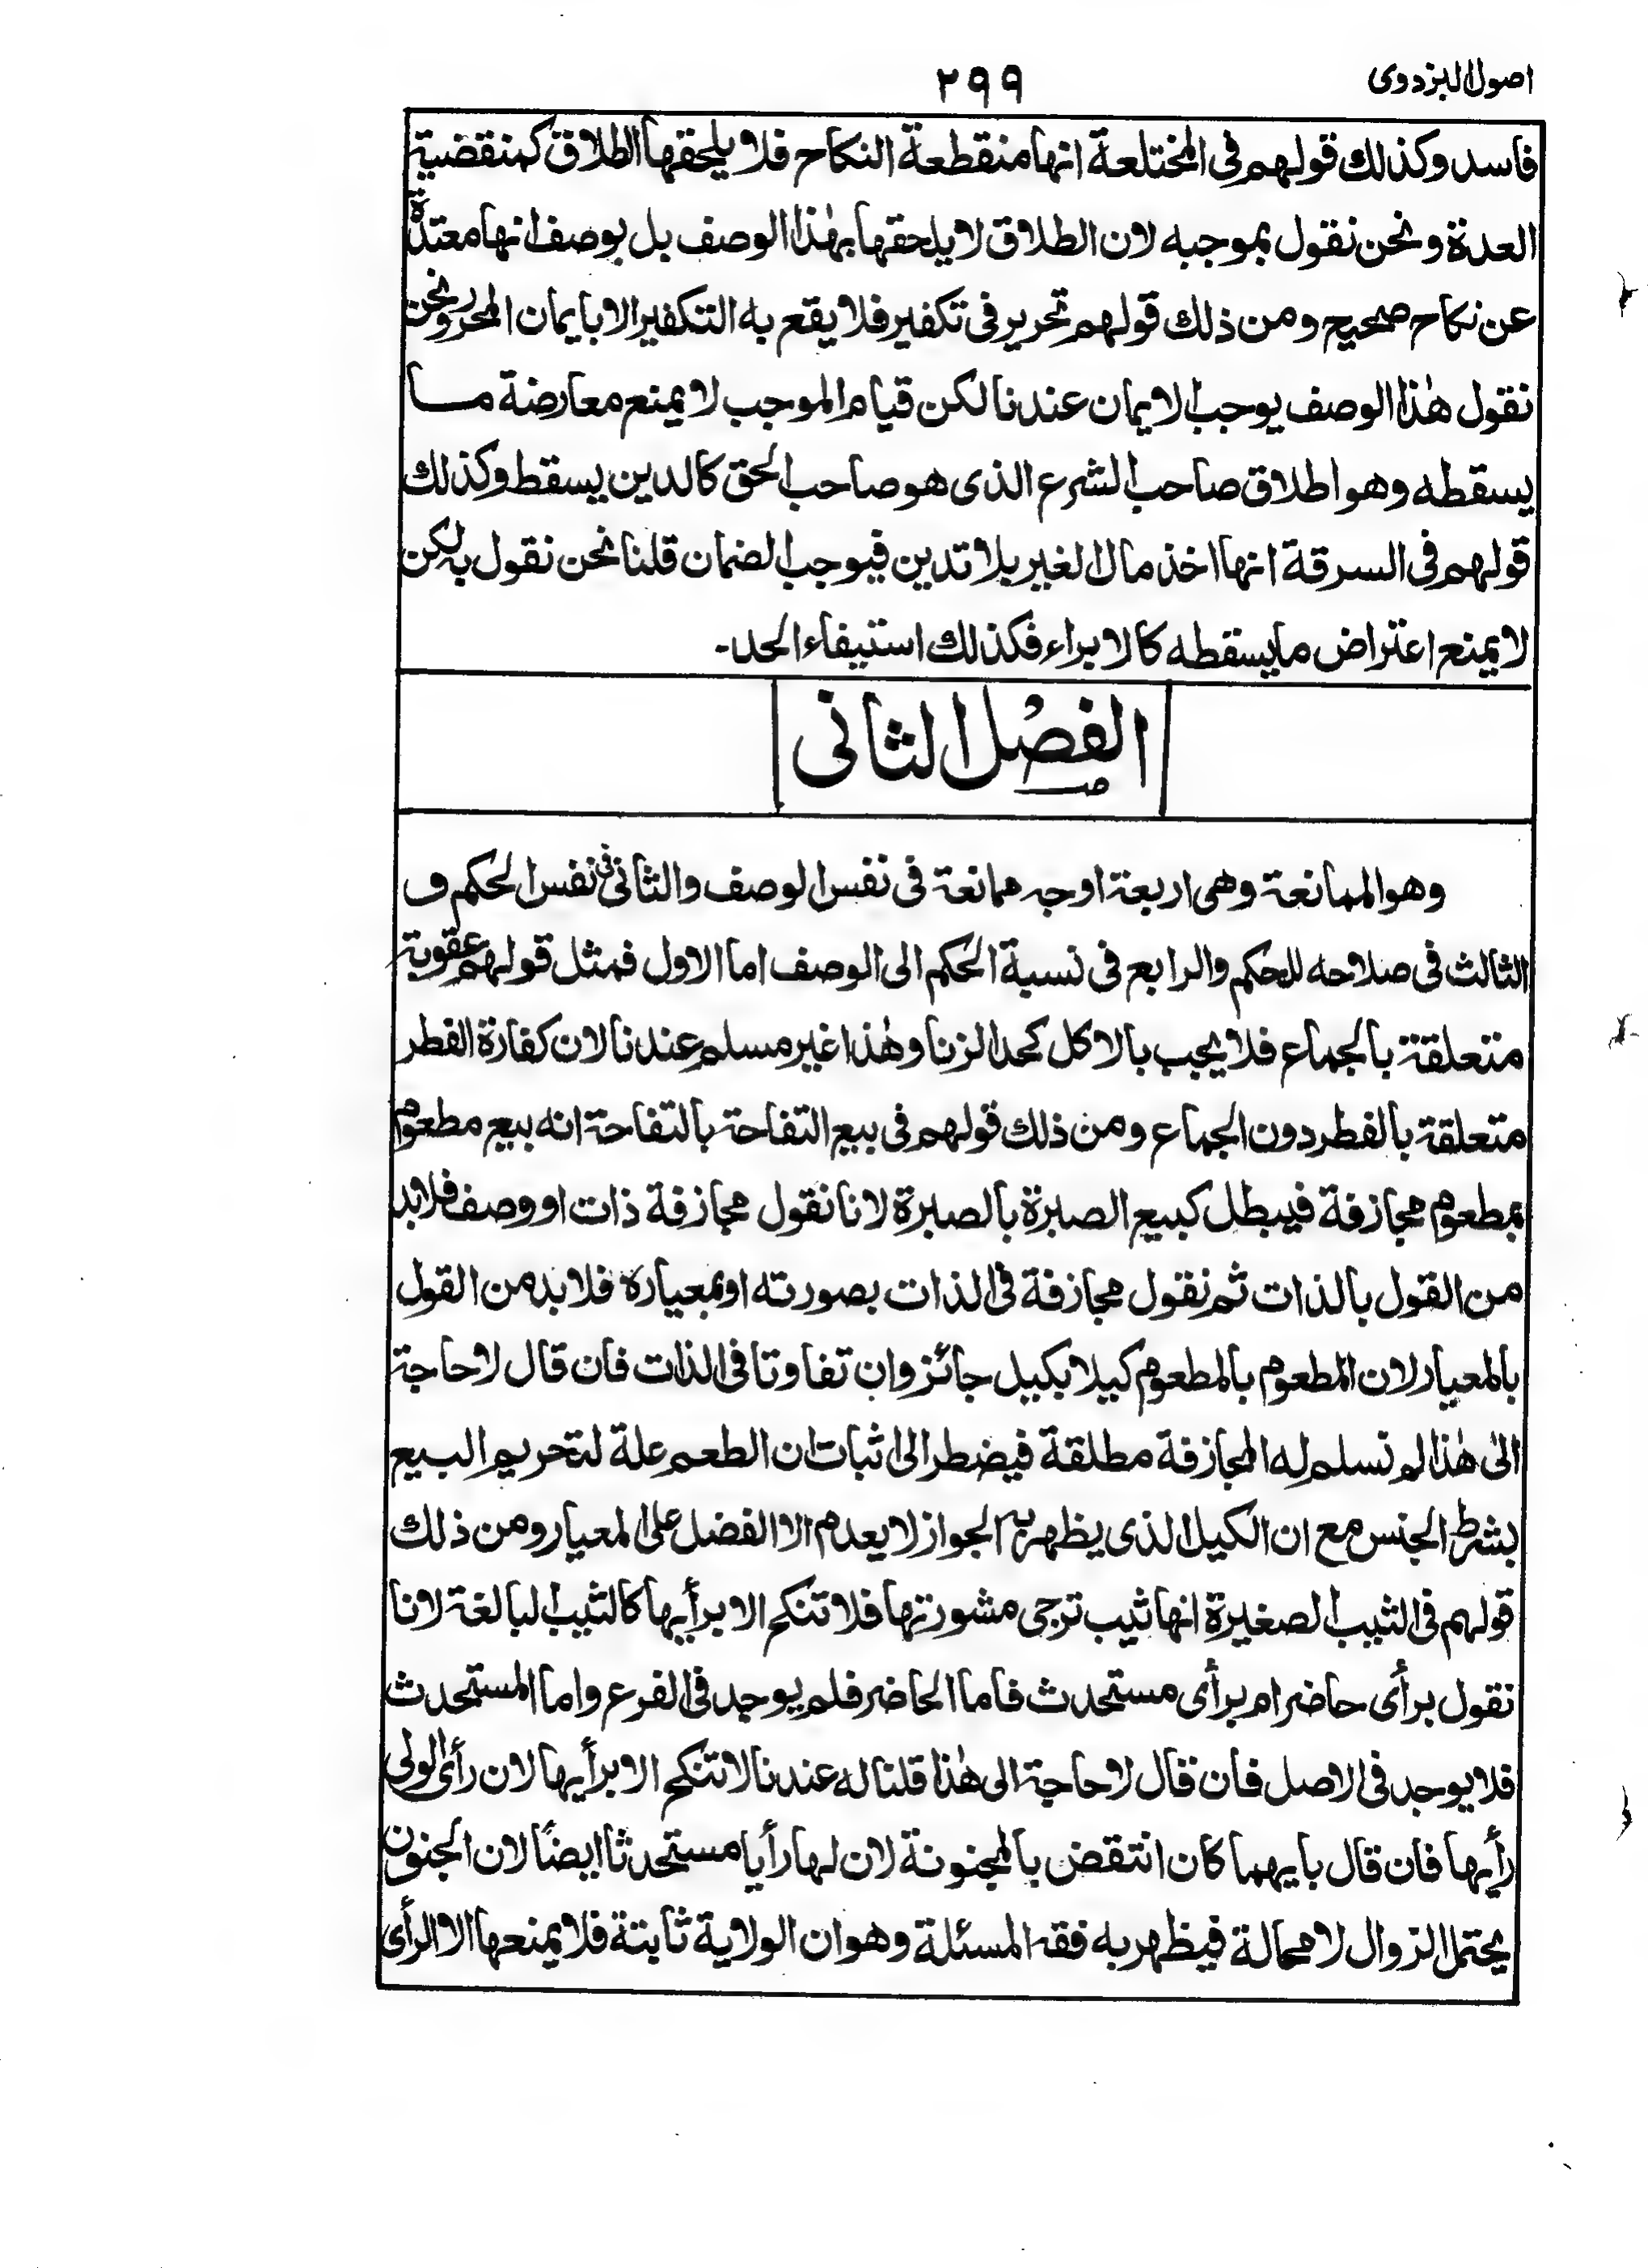 اصول البزدوی
۲۹۹
فاسد وكذلك قولهم فى المختلعة انها منقطعة النكاح فلا يلحقها الطلاق كمنقضية
العدة ونحن نقول بموجبه لان الطلاق لا يلحقها بهٰذا الوصف بل بوصف انها معتدة
عن نكاح صحيح ومن ذلك قولهم تحرير فى تكفير فلا يقع به التكفير الا بايمان المحرر ونحن
نقول هٰذا الوصف يوجب الايمان عندنا لكن قيام الموجب لا يمنع معارضة ما
يسقطه وهو اطلاق صاحب الشرع الذى هو صاحب الحق كالدين يسقط وكذلك
قولهم فى السرقة انها اخذ مال الغير بلا تدين فيوجب الضمان قلنا نحن نقول به لكن
لا يمنع اعتراض ما يسقطه كالابراء فكذلك استيفاء الحد۔
الفصل الثانى
وهو الممانعة وهى اربعة اوجه ممانعة فى نفس الوصف والثانى فى نفس الحكم و
الثالث فى صلاحه للحكم والرابع فى نسبة الحكم الى الوصف اما الاول فمثل قولهم عقوبة
متعلقة بالجماع فلا يجب بالاكل كحد الزنا وهٰذا غير مسلم عندنا لان كفارة الفطر
متعلقة بالفطر دون الجماع ومن ذلك قولهم فى بيع التفاحة بالتفاحة انه بيع مطعوم
بمطعوم مجازفة فيبطل كبيع الصبرة بالصبرة لانا نقول مجازفة ذات او وصف فلا بد
من القول بالذات ثم نقول مجازفة فى الذات بصورته او بمعياره فلا بد من القول
بالمعيار لان المطعوم بالمطعوم كيلا بكيل جائز وان تفاوتا فى الذات فان قال لا حاجة
الىٰ هٰذا لم تسلم له المجازفة مطلقة فيضطر الى اثبات ان الطعم علة لتحريم البيع
بشرط الجنس مع ان الكيل الذى يظهر به الجواز لا يعدم الا الفضل على المعيار ومن ذلك
قولهم فى الثيب الصغيرة انها ثيب ترجى مشورتها فلا تنكح الا برأيها كالثيب البالغة لانا
نقول برأى حاضر ام برأى مستحدث فاما الحاضر فلم يوجد فى الفرع واما المستحدث
فلا يوجد فى الاصل فان قال لا حاجة الى هٰذا قلنا له عندنا لا تنكح الا برأيها لان رأى الولى
رأيها فان قال بايهما كان انتقض بالمجنونة لان لها رأيا مستحدثا ايضًا لان الجنون
يحتمل الزوال لا محالة فيظهر به فقه المسئلة وهو ان الولاية ثابتة فلا يمنعها الا الرأى